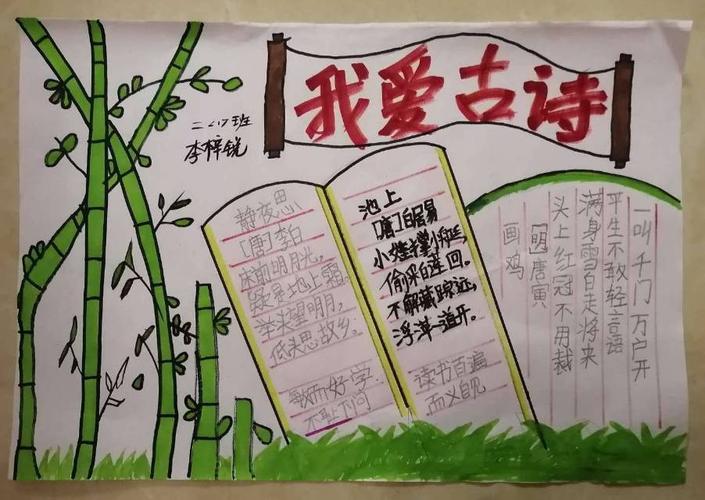 我爱古诗
二(7)班
李梓锐
静夜思
[唐]李白
床前明月光,
疑是地上霜。
举头望明月,
低头思故乡。
敏而好学
不耻下问
池上
[唐]白居易
小娃撑小艇,
偷采白莲回。
不解藏踪迹,
浮萍一道开。
读书百遍
而义自见
画鸡
[明]唐寅
头上红冠不用裁
满身雪白走将来
平生不敢轻言语
一叫千门万户开